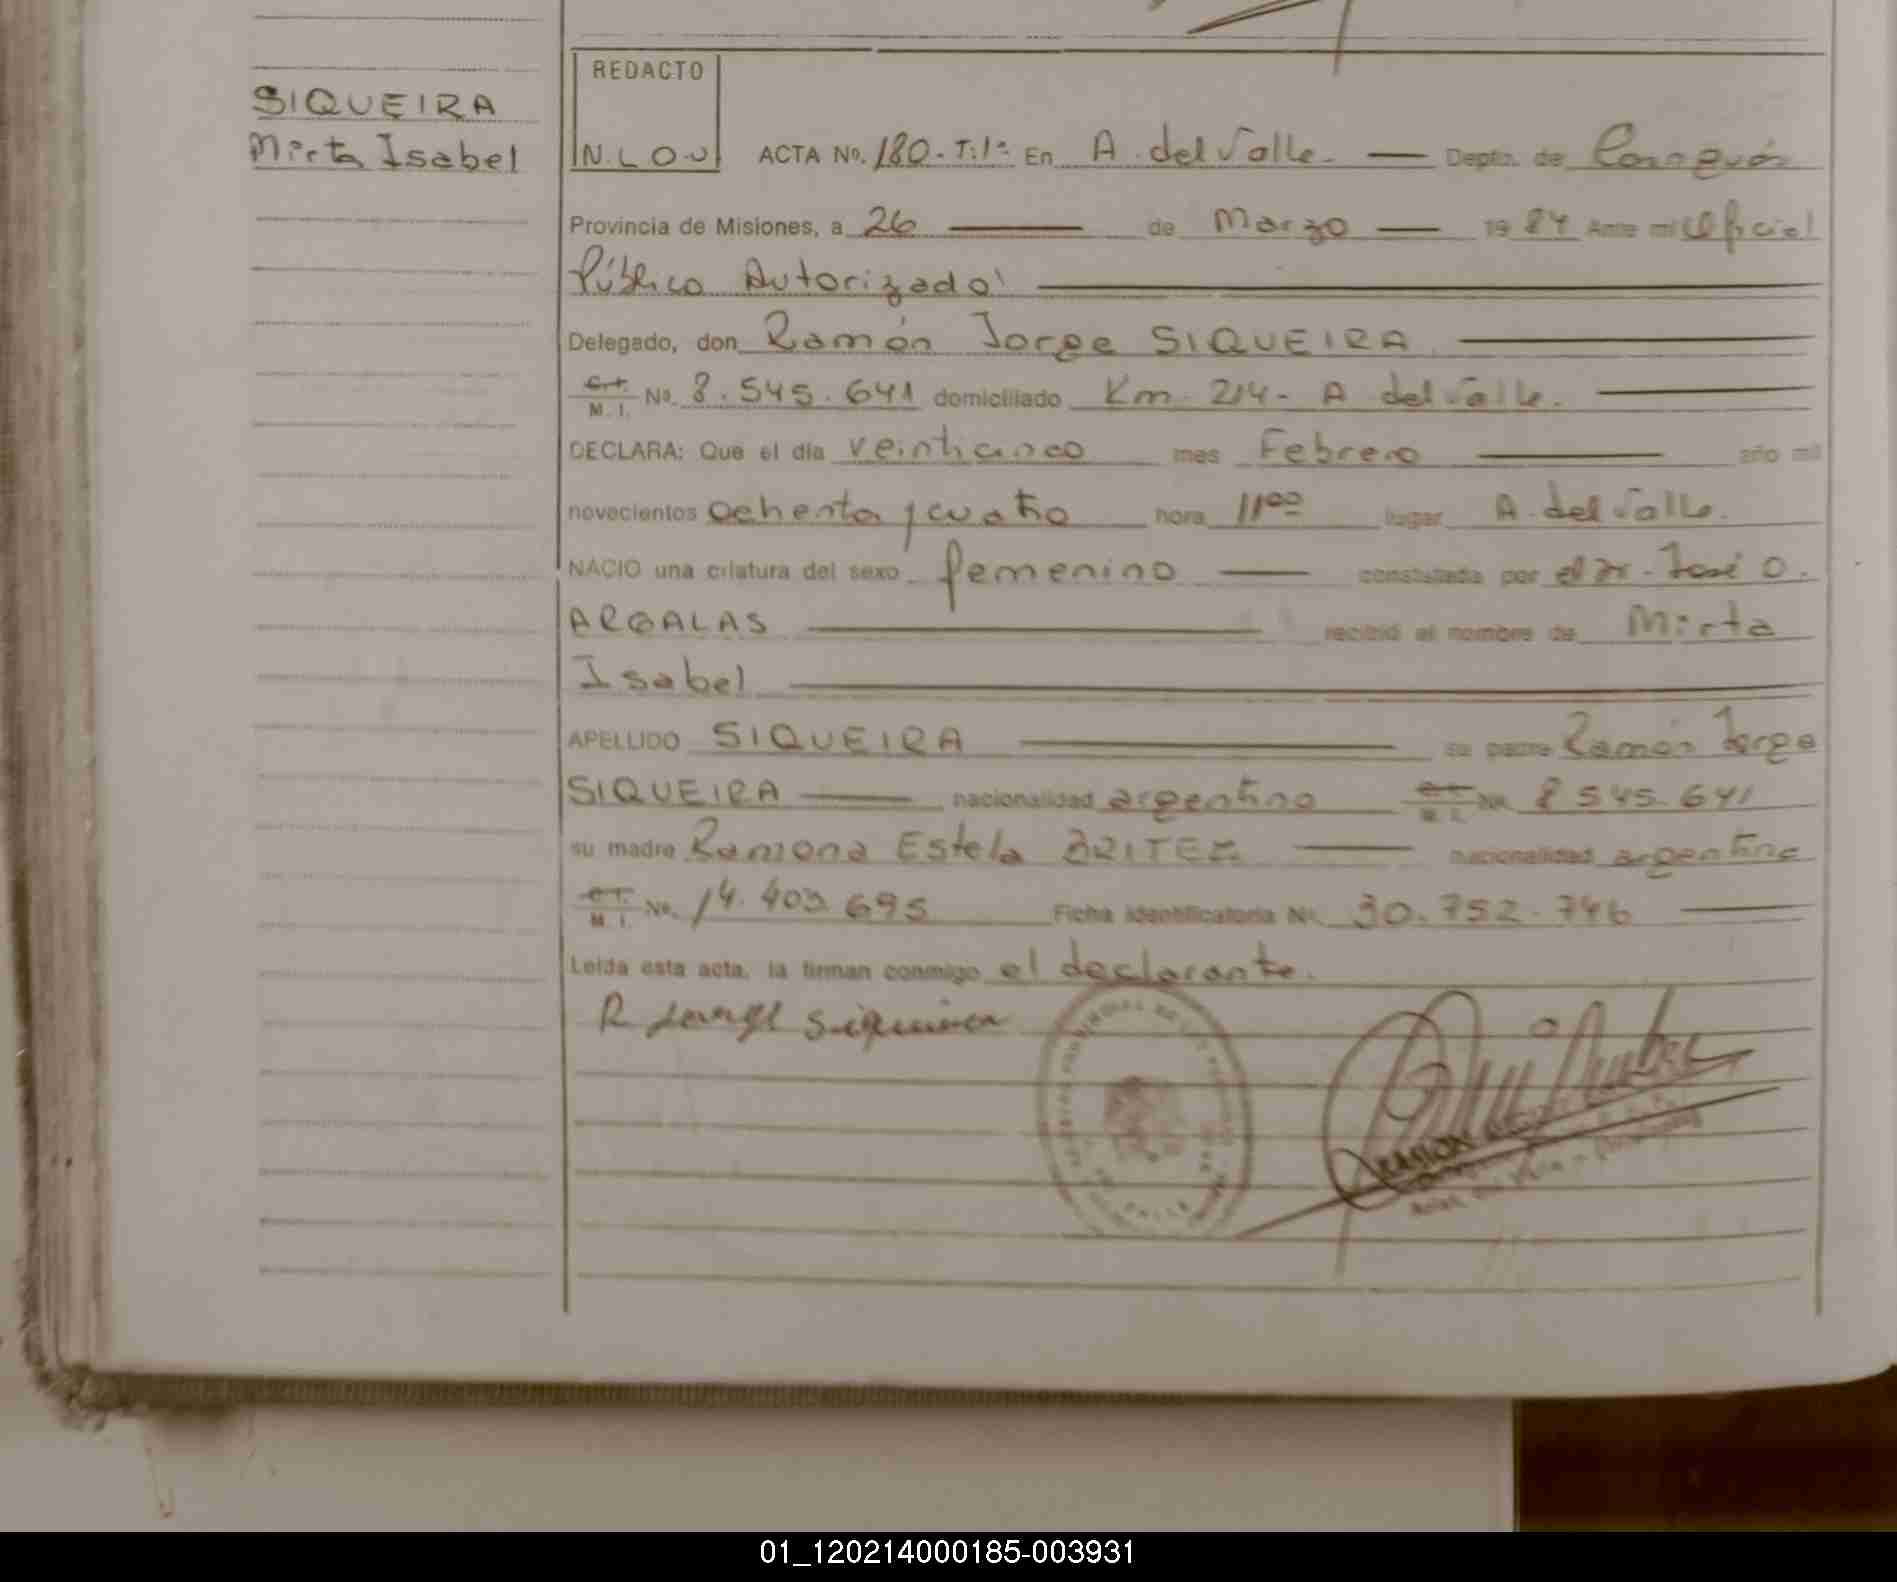 SIQUEIRA
Mirta Isabel
REDACTO
N.L.O.U
ACTA No. 180-T:1º En A. del Valle. Depto. de
Provincia de Misiones, a 26 de Marzo 1984 Ante mi Oficial
Público Autorizado
Delegado, don Ramón Jorge SIQUEIRA
C.I. M.I. No. 8.545.641 domiciliado Km. 214- A del Valle.
DECLARA: Que el día veinticinco mes Febrero año mil
novecientos ochenta y cuatro hora 11⁰⁰ lugar A. del Valle.
NACIO una criatura del sexo femenino constatada por el Dr. José O.
ARGALAS recibió el nombre de Mirta
Isabel
APELLIDO SIQUEIRA su padre Ramón Jorge
SIQUEIRA nacionalidad argentino C.I. M.I. No. 8545.641
su madre Ramona Estela BRITEZ nacionalidad argentina
C.I. M.I. No. 14.403.695 Ficha Identificatoria No. 30.752.746
Leída esta acta, la firman conmigo el declarante.
R Jorge Siqueira
01_120214000185-003931